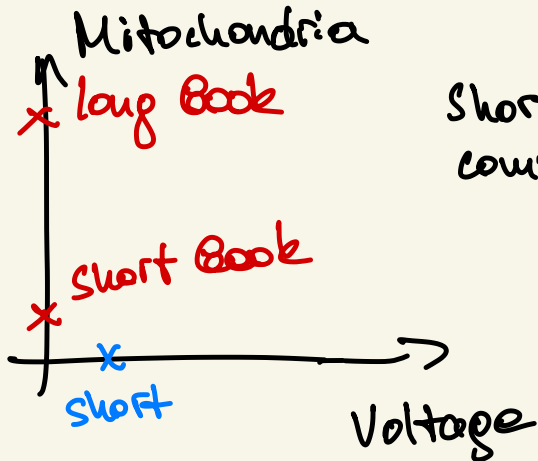 Mitochondria
long Book
short Book
short
Voltage